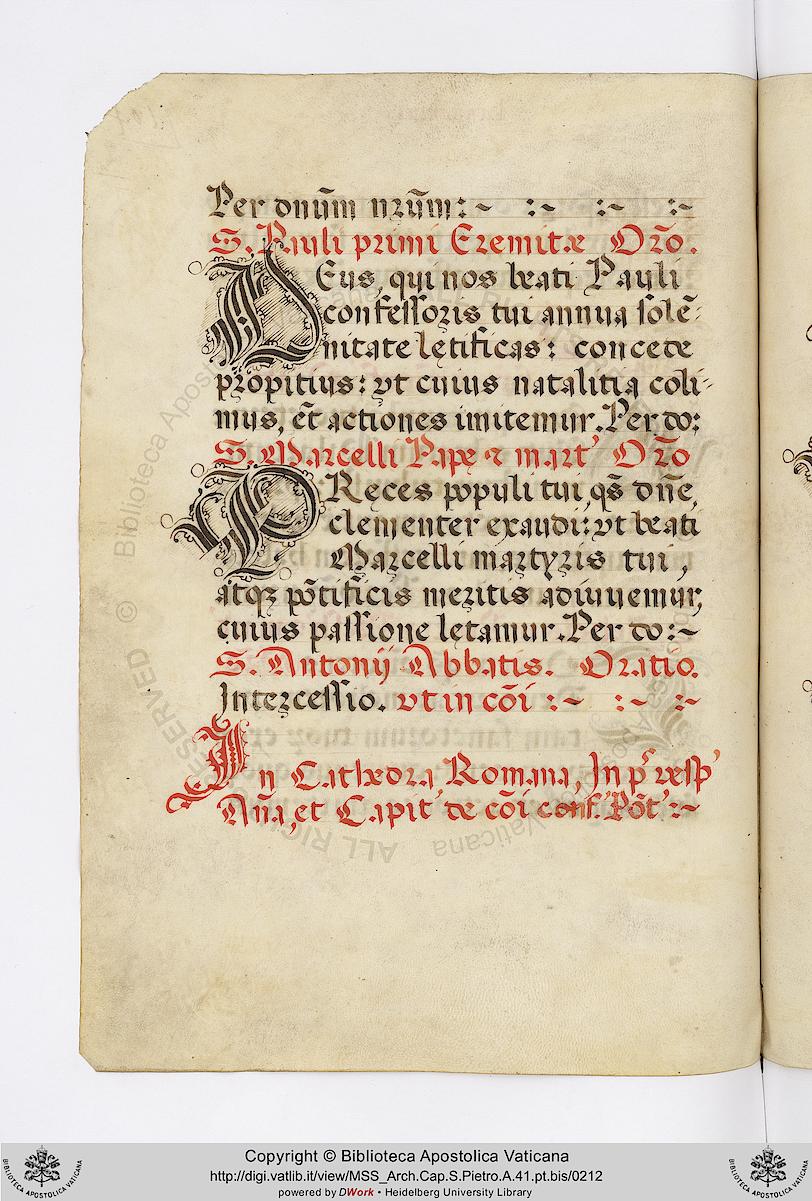 Per dnūm nrūm: ~ : ~ : ~ : ~
S. Pauli primi Eremitæ Orõ.
DEus, qui nos beati Pauli
confessoris tui annua solē-
nitate lętificas: concede
propitius: vt cuius natalitia coli-
mus, et̄ actiones imitemur. Per do:
S. Marcelli Papę & mart' Orõ
PReces populi tui, qs̄ dn̄e,
clementer exaudi: vt beati
Marcelli martyris tui,
atqꝫ põtificis meritis adiuuemur,
cuius passione lętamur. Per do: ~
S. Antonij Abbatis. Oratio.
Intercessio. vt in cõi : ~ : ~ : ~
In Cathedra Romana, In pͥ vesp'
Añа, et Capit' de cõi conf. Põt' : ~
© Biblioteca Apostolica Vaticana ALL RIGHTS RESERVED
Copyright © Biblioteca Apostolica Vaticana
http://digi.vatlib.it/view/MSS_Arch.Cap.S.Pietro.A.41.pt.bis/0212
powered by DWork • Heidelberg University Library
BIBLIOTECA APOSTOLICA VATICANA
BIBLIOTECA APOSTOLICA VATICANA